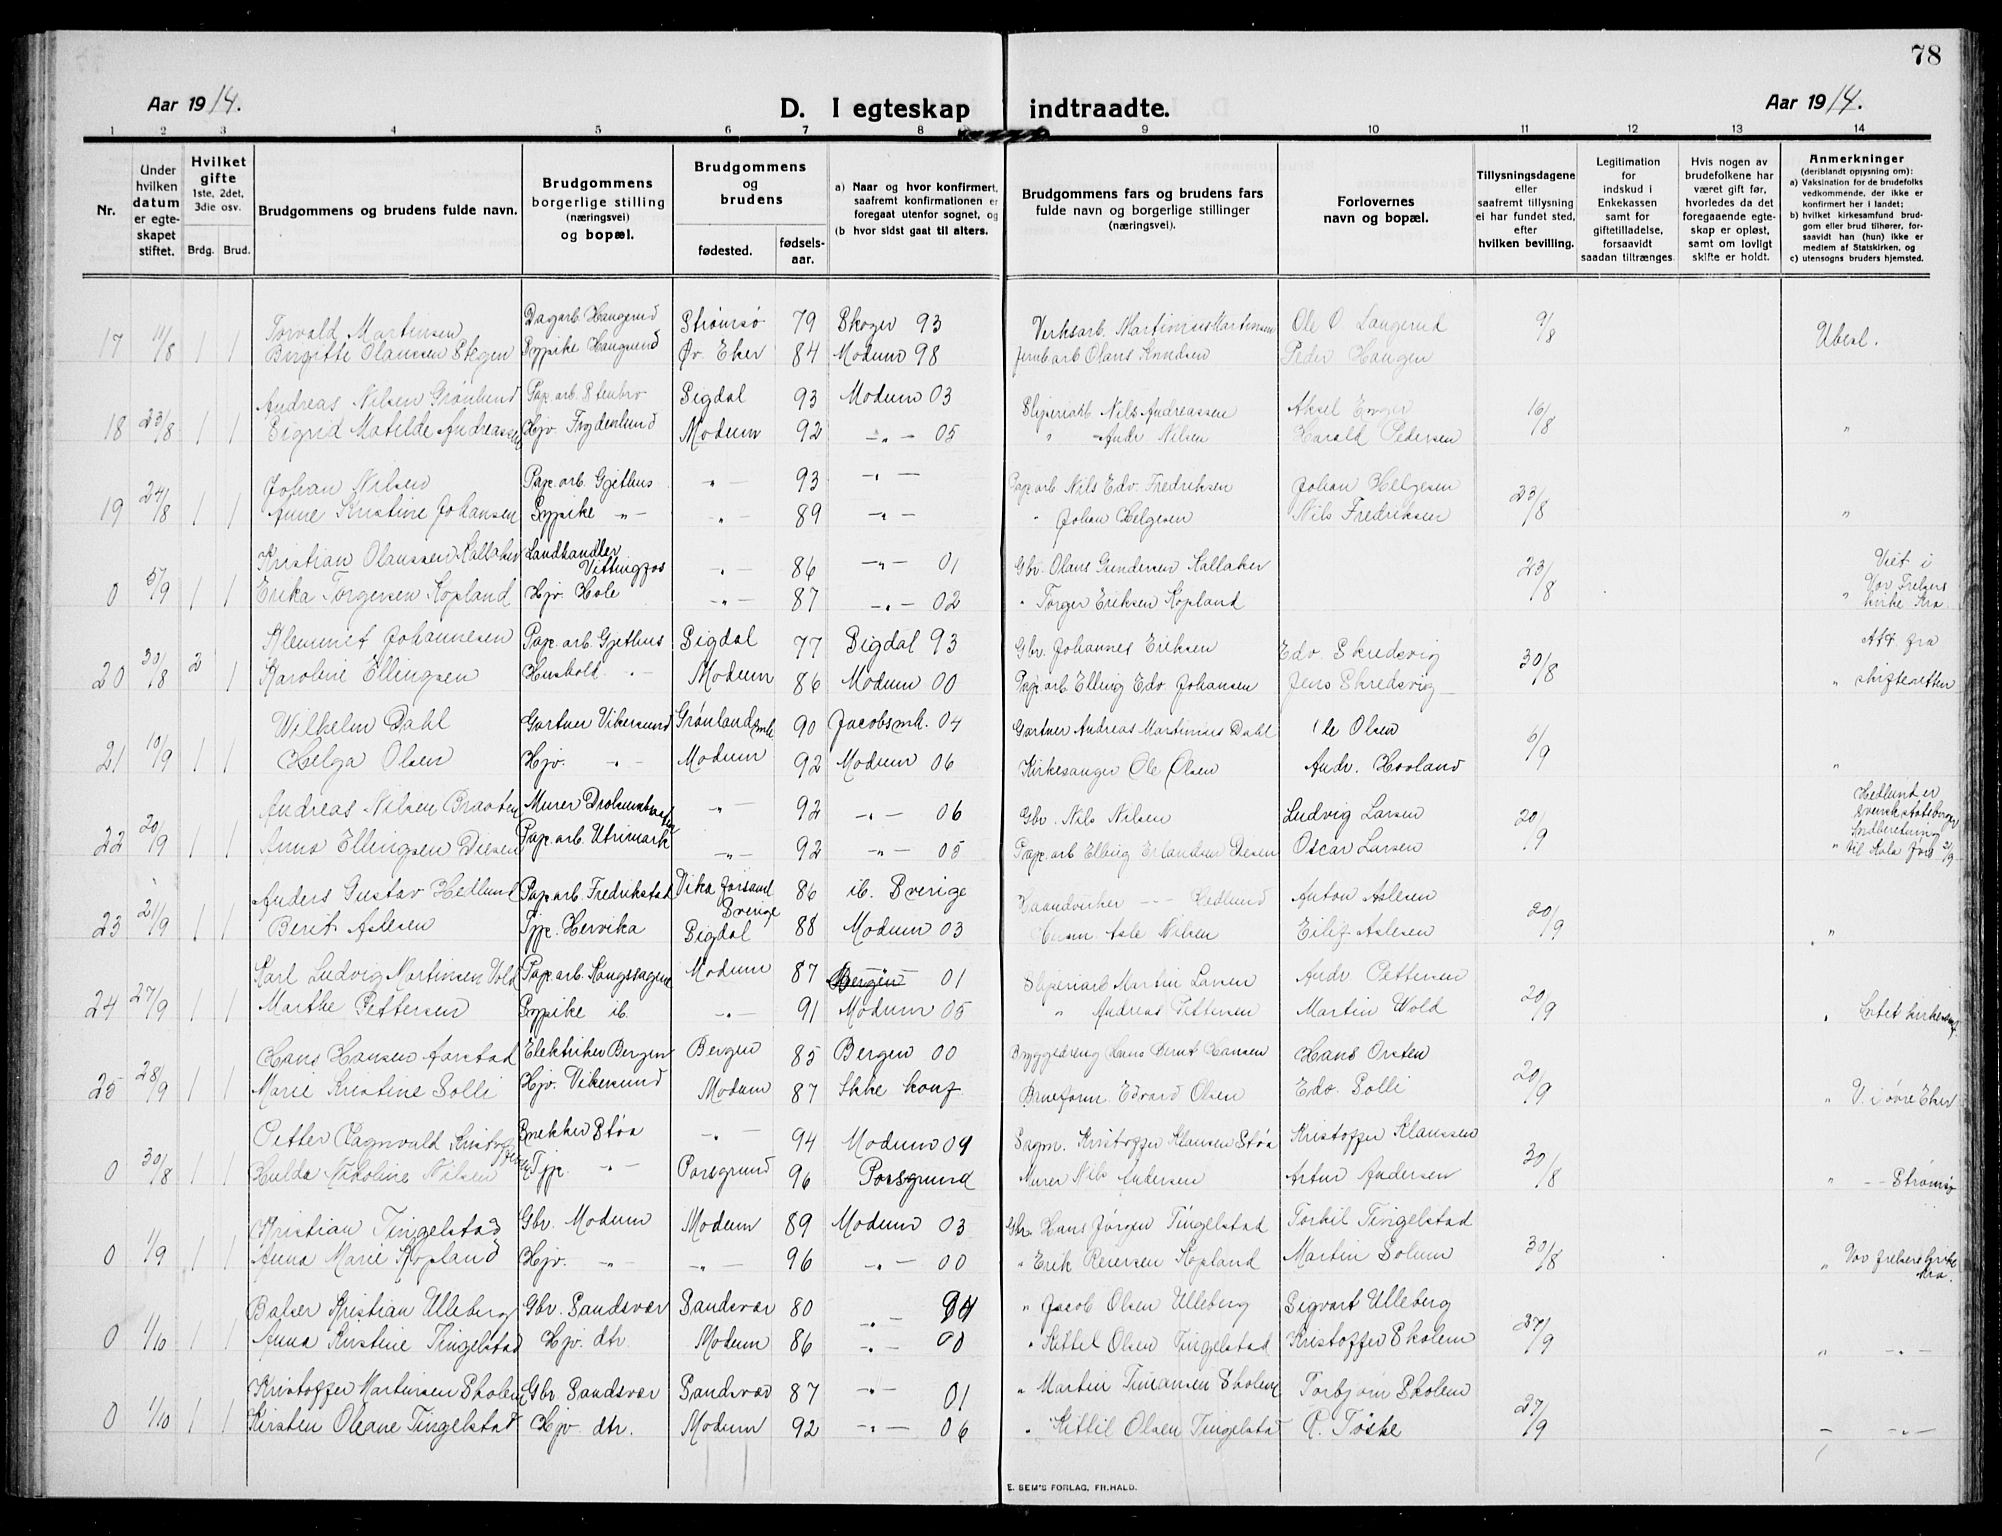 78
Aar 1914.
D. I egteskap indtraadte.
Aar 1914.
1 2 3 4 5 6 7 8 9 10 11 12 13 14
Nr.
Under hvilken datum er egteskapet stiftet.
Hvilket gifte 1ste, 2det, 3die osv.
Brdg. Brud.
Brudgommens og brudens fulde navn.
Brudgommens borgerlige stilling (næringsvei) og bopæl.
Brudgommens og brudens
fødested.
fødselsaar.
a) Naar og hvor konfirmert, saafremt konfirmationen er foregaat utenfor sognet, og
(b hvor sidst gaat til alters.
Brudgommens fars og brudens fars fulde navn og borgerlige stillinger (næringsvei).
Forlovernes navn og bopæl.
Tillysningsdagene eller saafremt tillysning ei har fundet sted, efter hvilken bevilling.
Legitimation for indskud i Enkekassen samt for giftetilladelse, forsaavidt saadan tiltrænges.
Hvis nogen av brudefolkene har været gift før, hvorledes da det foregaaende egteskap er opløst, samt om lovligt skifte er holdt.
Anmerkninger (deriblandt opjysning om):
a) Vaksination for de brudefolks vedkommende, der ikke er konfirmert her i landet;
b) hvilket kirkesamfund brudgom eller brud tilhører, forsaavidt han (hun) ikke er medlem af Statskirken, og
c) utensogns bruders hjemsted.
17 11/8 1 1 Torvald Martinsen Dagarb. Haugerud Strømsø 79 Skoger 93 Verksarb. Martinius Martinsen Ole O. Langerud 9/8 Ubesl.
Birgitte Olaussen Stegen Sypike Haugerud Øv. Eker 84 Modum 98 Jernbarb Olaus Knudsen Peder Haugen
18 23/8 1 1 Andreas Nilsen Grønlund Pap. arb. Stenbro Sigdal 93 Modum 03 Sliperiarb. Nils Andreassen Aksel Enger 16/8 "
Sigrid Matilde Andreassen Hjv. Frydenlund Modum 92 -"- 05 " Andr Nilsen Harald Pedersen
19 24/8 1 1 Johan Nilsen Pap. arb. Gjethus -"- 93 -"- Pap arb Nils Edv. Fredriksen Johan Helgesen 23/8 "
Anne Kristine Johansen Sypike -"- -"- 89 -"- " Johan Helgesen Nils Fredriksen
0 5/9 1 1 Kristian Olaussen Kallaker Landhandler Vittingfos -"- 86 -"- 01 Gbr. Olaus Gundersen Kallaker 23/8 Viet i Vor Frelsers kirke Kra
Erika Torgersen Kopland Hjv. Hole -"- 87 -"- 02 " Torger Eriksen Kopland
20 30/8 2 1 Klemmet Johannesen Pap. arb. Gjethus Sigdal 77 Sigdal 93 Gbr. Johannes Eriksen Edv. Skredsvig 30/8 Att. fra
Karoline Ellingsen Hushold. -"- Modum 86 Modum 00 Pap arb Elling Edv. Johansen Jens Skredsvig " skifteretten
21 10/9 1 1 Wilhelm Dahl Gartner Vikersund Grønland mh 90 Jacobs mh. 04 Gartner Andreas Martinius Dahl Ole Olsen 6/9 "
Helga Olsen Hjv. -"- Modum 92 Modum 06 Kirkesanger Ole Olsen Andr. Hovland
22 20/9 1 1 Andreas Nilsen Braaten Murer -"- 92 -"- 06 Gbr. Nils Nilsen Ludvig Larsen 20/9 Hedlund er svensk statsborger
Anna Ellingsen Diesen Pap. arb. Utrimark -"- 92 -"- 05 Pap. arb Elling Erlandsen Diesen Oscar Larsen "
23 21/9 1 1 Anders Gustav Hedlund Pap arb. Fredrikstad Vika Sverige 86 ib. Sverige Haandverker --- Hedlund Anton Aslesen 20/9 "
Berit Aslesen Tjp. Hervika Sigdal 88 Modum 03 Asle Nilsen Eilif Aslesen
24 27/9 1 1 Karl Ludvig Martinsen Vold Pap. arb. Modum 87 Bergen 01 Sliperiarb Martin Larsen Andr Pettersen 20/9
Marthe Pettersen Sypike ib. -"- 91 Modum 05 " Andreas Pettersen Martin Wold
25 28/9 1 1 Hans Hansen Aarstad Elektriker Bergen Bergen 85 Bergen 00 Bryggedreng Hans Bernt Hansen Hans Orsten 20/9
Marie Kristine Solli Hjv. Vikersund Modum 87 Ikke konf Baneform. Edvard Olsen Edv. Solli " V. i øvre Eker
0 30/8 1 1 Petter Ragnvald Kristoffersen Snekker Støa -"- 94 Modum 09 Sagm. Kristoffer Klausen Støa Kristoffer Klaussen 30/8
Hulda Nikoline Nilsen Tjp. -"- Porsgrund 96 Porsgrund Murer Nils Andersen Artur Andersen " -- Strømsø
0 1/9 1 1 Kristian Tingelstad Gbr. Modum Modum 89 Modum 03 Gbr. Hans Jørgen Tingelstad Torkil Tingelstad 30/8
Anna Marie Kopland Hjv. -"- -"- 96 -"- 00 " Erik Reiersen Kopland Martin Solum " Vor frelsers kirke Kra.
0 1/10 1 1 Balser Kristian Ulleberg Gbr. Sandsvær Sandsvær 80 -"- 94 " Jacob Olsen Ulleberg Sigvart Ulleberg 27/9
Anna Kristine Tingelstad Hjv. dtr. Modum 86 -"- 00 " Kittel Olsen Tingelstad Kristoffer Skolem " -"-
0 1/10 1 1 Kristoffer Martinsen Skolem Gbr. Sandsvær Sandsvær 87 -"- 01 " Martin Skolem Torbjørn Skolem 27/9
Kirsten Oleane Tingelstad Hjv. dtr. Modum 92 -"- 06 " Kittil Olsen Tingelstad R. Tøske -"-
E. SEM'S FORLAG, FR.HALD.